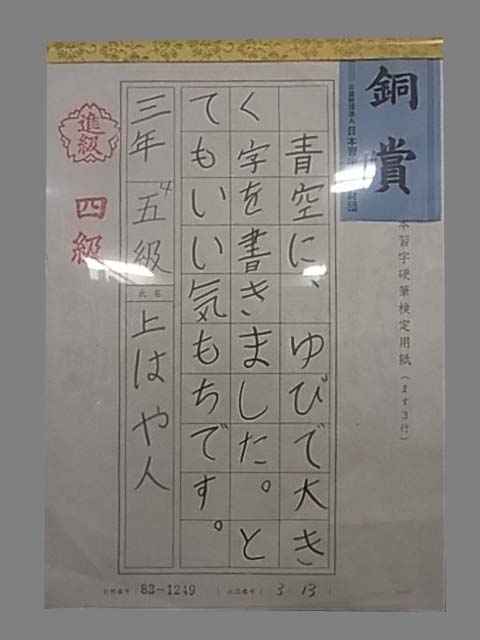 銅賞
公益財団法人 日本習字
財団
本習字硬筆検定用紙(ます3行)
青空に、ゆびで大き
く字を書きました。と
てもいい気もちです。
三年 五級
4
氏名
上はや人
進級
四級
(83-1249)
(3-13)